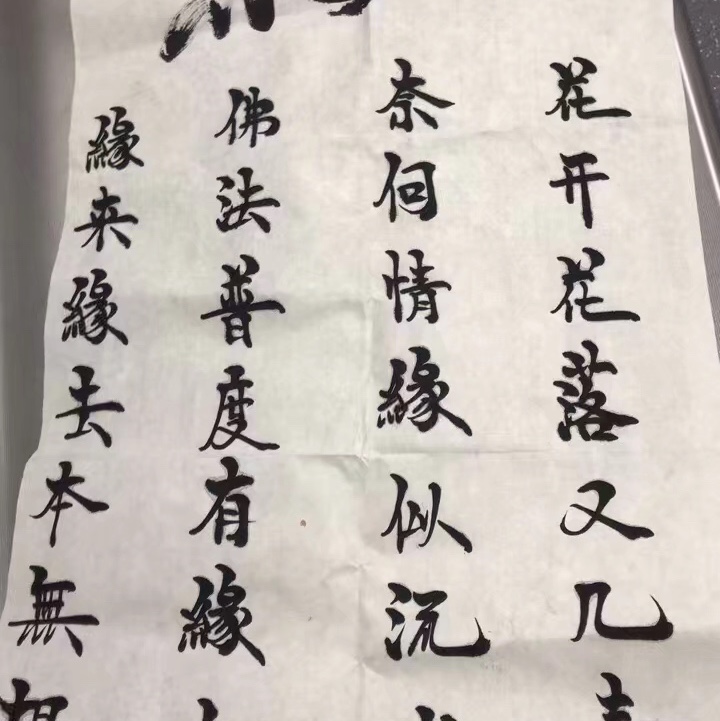 花开花落又几
奈何情緣似沉
佛法普度有緣
緣来緣去本無